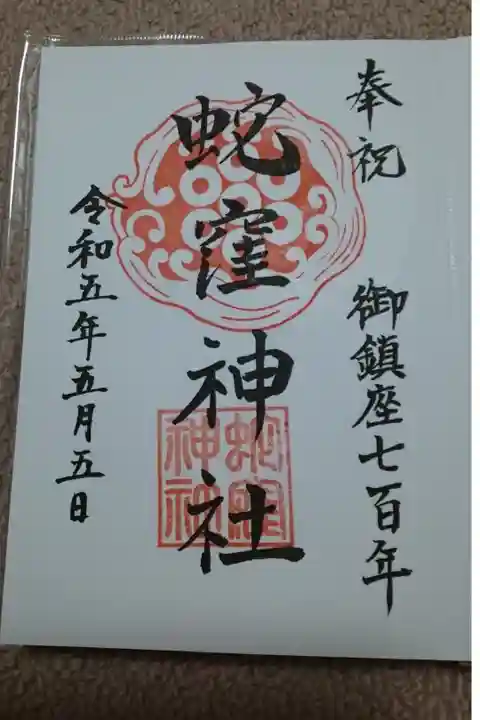 奉祝
御鎮座七百年
蛇窪神社
蛇窪
神社
令和五年五月五日